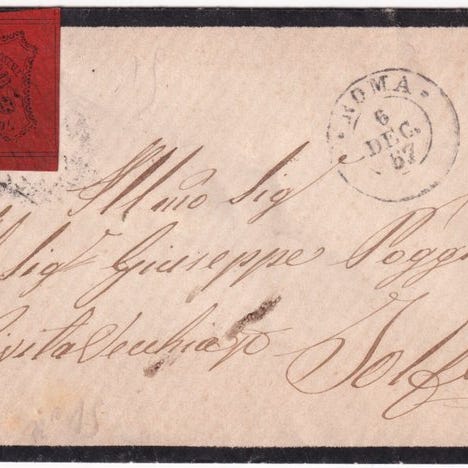 ROMA
6
DEC.
67
Illmo Sig
Sigr Giuseppe Pogg
ivita Vecchia p Tolf